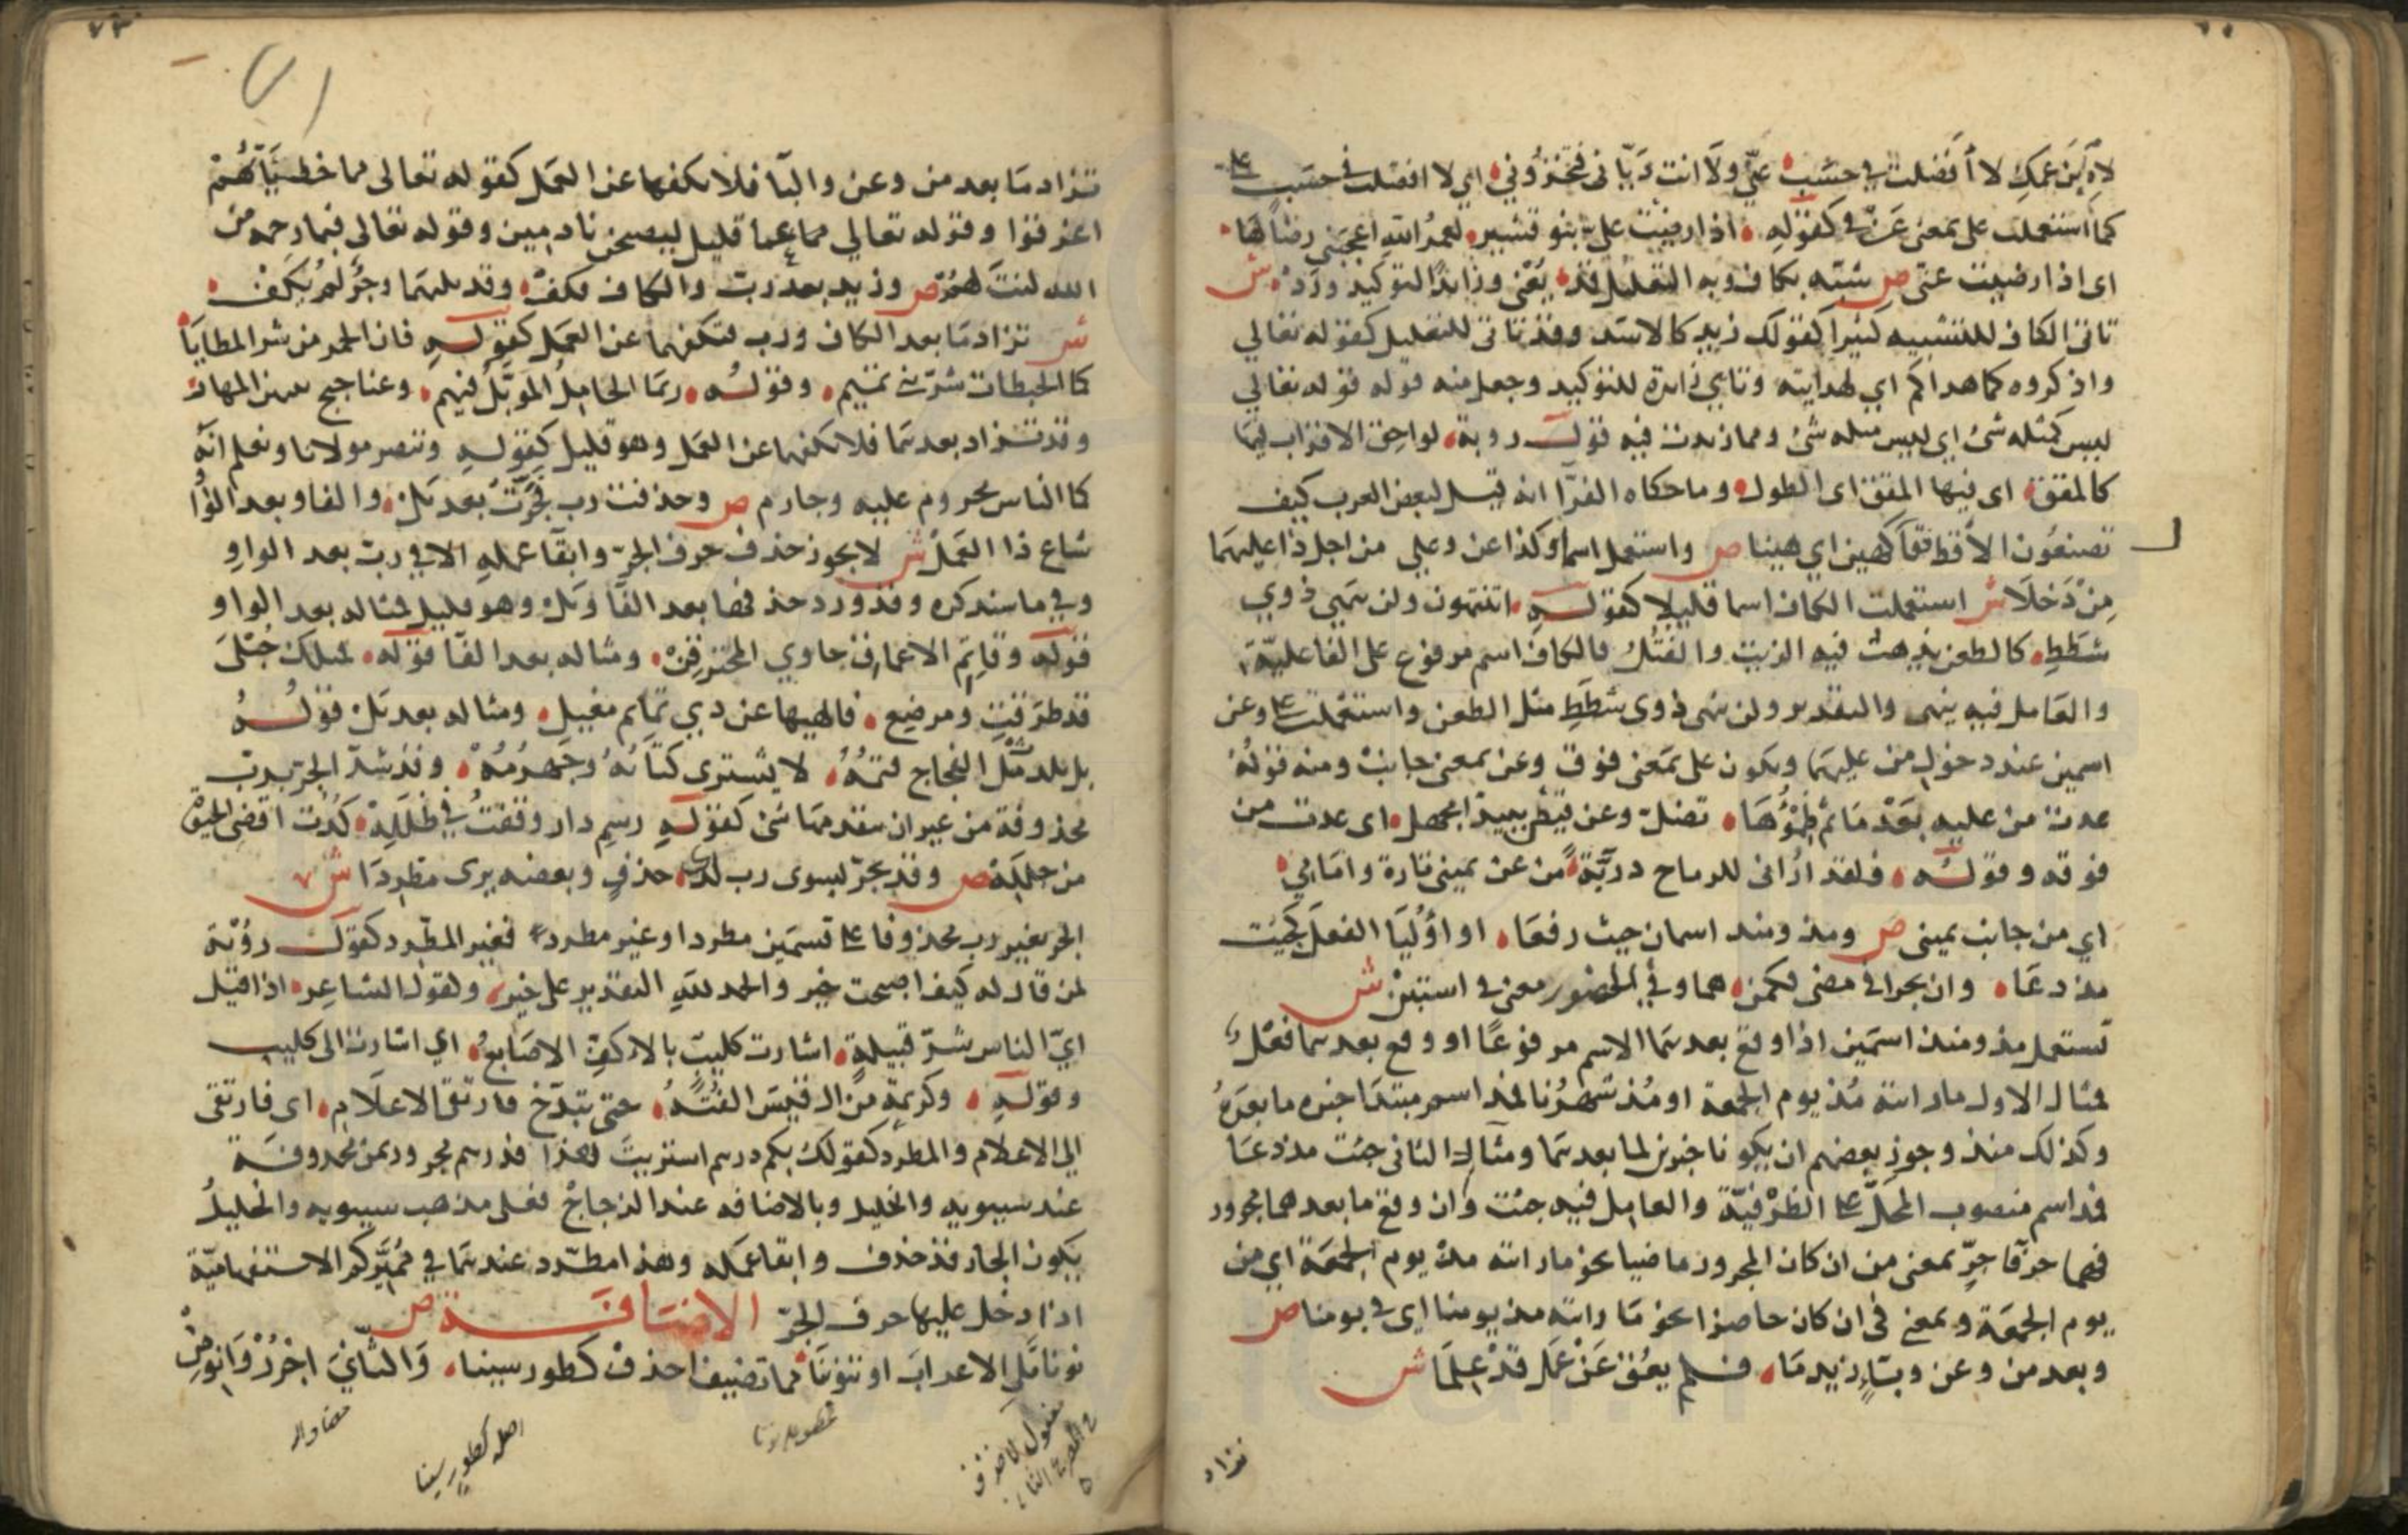 لاه ابن عمك لا أفضلت في حسب عني ولا انت ديّاني فتخزوني اي لا افضلت في حسب علي
كما استعملت على بمعنى عن في كقوله اذا رضيت علي بنو قشير لعمر الله اعجبني رضاها
اي اذا رضيت عني ص شبّه بكاف وبه التعليل قد يعني وزايدا لتوكيد ورد ش
تاتي الكاف للتشبيه كثيرا كقولك زيد كالاسد وقد تاتي للتعليل كقوله تعالي
واذكروه كما هداكم اي لهدايته وتاتي زايدة للتوكيد وجعل منه قوله قوله تعالي
ليس كمثله شئ اي ليس مثله شئ ومما زيدت فيه قول روبة لواحق الاقراب فيها
كالمقق اي فيها المقق اي الطول وما حكاه الفرّا انه قيل لبعض العرب كيف
تصنعون الأقط فقال كهين اي هينا ص واستعمل اسما وكذا عن وعلي من اجل ذا عليهما
مِن دَخلا ش استعملت الكاف اسما قليلا كقوله اتنتهون ولن ينهي ذوي
شطط كالطعن يذهب فيه الزيت والفتل فالكاف اسم مرفوع على الفاعلية
والعامل فيه ينهى والتقدير ولن ينهى ذوي شطط مثل الطعن واستعملت على وعن
اسمين عند دخول من عليهما وتكون على بمعنى فوق وعن بمعنى جانب ومنه قوله
غدت من عليه بعد ما تم ظمؤها تصل وعن قيض ببيدا مجهل اي غدت من
فوقه وقوله ولقد اراني للرماح دريّة من عن يميني تارة وامامي
اي من جانب يميني ص ومذ ومنذ اسمان حيث رفعا او أوليا الفعل كجيت
مذ دعا وان يجرا في مضى فكمن هما وفي الحضور معنى في استبن ش
تستعمل مذ ومنذ اسمين اذا وقع بعدهما الاسم مرفوعًا او وقع بعدهما فعل
فمثال الاول ما رايته مُذ يوم الجمعة او مُذ شهرنا فمذ اسم مبتدا خبره ما بعده
وكذلك منذ وجوز بعضهم ان يكونا خبرين لما بعدهما ومثال الثاني جئت مذ دعا
فمذ اسم منصوب المحلّ على الظرفيّة والعامل فيه جئت وان وقع ما بعدهما مجرور
فهما حرفا جرّ بمعنى من ان كان المجرور ماضيا نحو ما رايته مذ يوم الجمعة اي من
يوم الجمعة وبمعنى في ان كان حاضرا نحو ما رايته مذ يومنا اي في يومنا ص
وبعد من وعن وباءٍ زيد ما فلم يعق عن عمل قد علما ش
تزاد
تزاد ما بعد من وعن والبا فلا تكفها عن العمل كقوله تعالى مما خطيئاتهم
اغرقوا وقوله تعالي عما قليل ليصبحن نادمين وقوله تعالى فبما رحمة من
الله لنت لهم ص وزيد بعد رب والكاف فكف وقد يليهما وجرّ لم يكف
ش تزاد ما بعد الكاف ورب فتكفهما عن العمل كقوله فان الحمر من شر المطايا
كما الحبطات شرّ بني تميم وقوله ربما الجامل المؤبّل فيهم وعناجيج بينهن المهار
وقد تزاد بعدهما فلا تكفهما عن العمل وهو قليل كقوله وننصر مولانا ونعلم انه
كما الناس مجروم عليه وجارم ص وحذفت رب فجرّت بعد بل والفا وبعد الواو
شاع ذا العمل ش لا يجوز حذف حرف الجرّ وابقا عمله الا في رب بعد الواو
وفي ما سنذكره وقد ورد حذفها بعد الفا وبل وهو قليل فمثاله بعد الواو
قوله وقاتم الاعماق خاوي المخترقن ومثاله بعد الفا قوله فمثلك حبلى
قد طرقت ومرضع فالهيها عن ذي تمايم مغيل ومثاله بعد بل قوله
بل بلد مثل الفجاج قتمه لا يشتري كتانه وجهرمه وقد شذ الجرّ برب
محذوفة من غير ان يتقدمها شئ كقوله رسم دار وقفت في طلله كدت اقضي الحيوة
من جلله ص وقد يجرّ بسوى رب لدى حذف وبعضه يرى مطردا ش
الجر بغير رب محذوفا على قسمين مطرد او غير مطرد فغير المطّرد كقول رؤبة
لمن قال له كيف اصبحت خير والحمد لله التقدير على خير ولقول الشاعر اذا قيل
ايّ الناس شرّ قبيلة اشارت كليبٍ بالاكف الاصابع اي اشارت الى كليب
وقوله وكريمة من ال قيس الفته حتى تبذّخ فارتقى الاعلام اي فارتقى
الي الاعلام والمطرد كقولك بكم درهم اشتريت هذا فدرهم مجرور بمن محذوفة
عند سيبويه والخليل وبالاضافه عند الزجاج فعلى مذهب سيبويه والخليل
يكون الجار قد حذف وابقا عمله وهذا مطّرد عندهما في مميّز كم الاستفهاميّة
اذا دخل عليها حرف الجرّ الاضافة ص
نونا تلى الاعراب او تنونيا مما تضيف احذف كطور سينا والثاني اجرر وانو من
مفعول لاحذف
في المصرع الثاني
اصله كطورٍ سينا